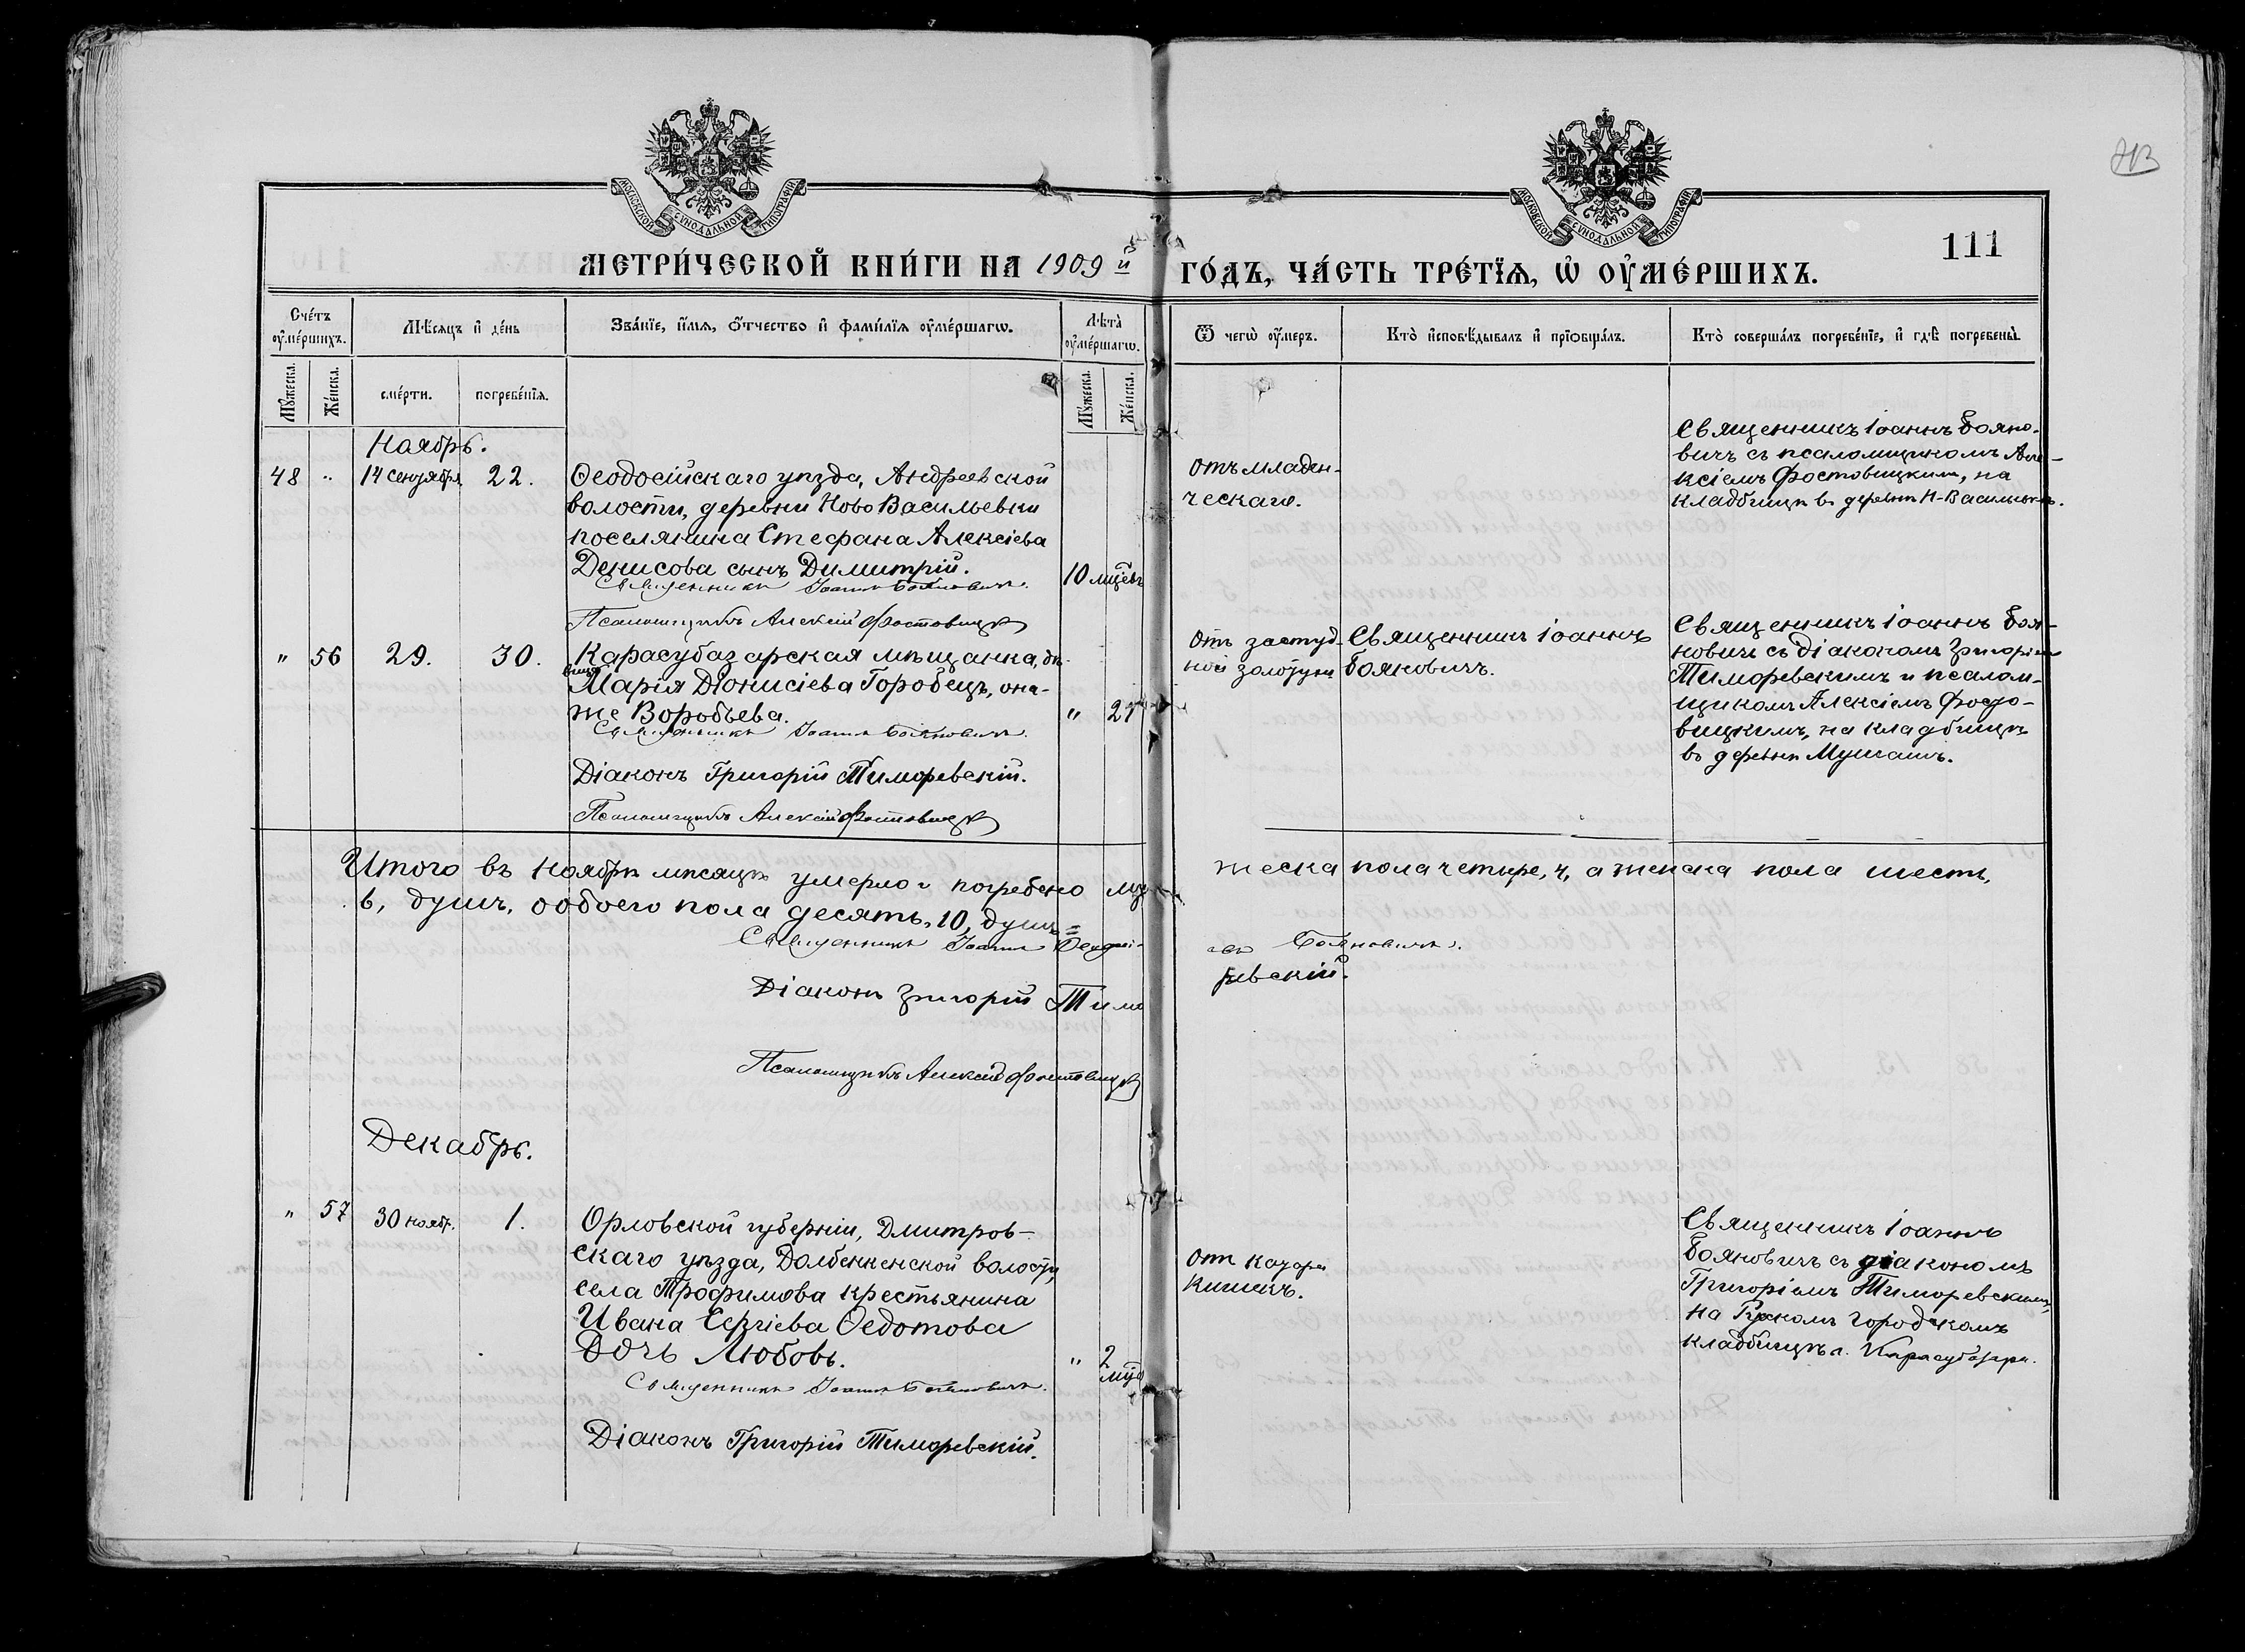 МОСКОВСКОЙ СУНОДАЛЬНОЙ ТИПОГРАФІИ
МОСКОВСКОЙ СУНОДАЛЬНОЙ ТИПОГРАФІИ
111
МЕТРИ́ЧЕСКОЙ КНИ́ГИ НА 1909 й ГО́ДЪ, ЧА́СТЬ ТРЕ́ТЇѦ, Ѡ ОУ҆МЕ́РШИХЪ.
Сче́тъ оу҆ме́ршихъ.
Мѣ́сяцъ и҆ де́нь
Зва́нїе, и҆́мя, ѻ҆́тчество и҆ фами́лїя оу҆ме́ршагѡ.
Лѣта̀ оу҆ме́ршагѡ.
Ѿ чегѡ̀ оу҆́меръ.
Кто̀ и҆сповѣ́дывалъ и҆ прїѡбща́лъ.
Кто̀ соверша́лъ погребе́нїе, и҆ гдѣ̀ погребены̀.
Мꙋ́жеска.
Же́нска.
сме́рти.
погребе́нїя.
Мꙋ́жеска.
Же́нска.
Ноябрь.
48 " 14 сентября 22.
Ѳеодосійскаго уѣзда, Андреевской
волости, деревни Ново Васильевки
поселянина Стефана Алексіева
Денисова сынъ Димитрій.
10 мцевъ
Священникъ Іоаннъ Бояновичъ.
Псаломщикъ Алексій Фостовицкій
отъ младен-
ческаго.
Священникъ Іоаннъ Бояно-
вичъ съ псаломщикомъ Але-
ксіемъ Фостовицкимъ, на
кладбищѣ въ деревнѣ Н-Васильевкѣ.
" 56 29. 30.
Карасубазарская мѣщанка, дѣ-
вица
Марія Діонисіева Горобецъ, она-
же Воробьева.
" 21
Священникъ Іоаннъ Бояновичъ.
Діаконъ Григорій Тиморевскій.
Псаломщикъ Алексій Фостовицкій
отъ застуд-
ной золотухи
Священникъ Іоаннъ
Бояновичъ.
Священникъ Іоаннъ Боя-
новичъ съ діакономъ Григоріемъ
Тиморевскимъ и псалом-
щикомъ Алексіемъ Фосто-
вицкимъ, на кладбищѣ
въ деревнѣ Мушашъ.
Итого въ Ноябрѣ мѣсяцѣ умерло и погребено му жеска пола четыре, 4, а женска пола шесть,
6, душъ, обоего пола десять, 10, душъ =
Священникъ Іоаннъ Бояновичъ.
Діаконъ Григорій Тимо ревскій.
Псаломщикъ Алексій Фостовицкій
Декабрь.
" 57 30 нояб. 1.
Орловской губерніи, Дмитров-
скаго уѣзда, Долбенкенской волости,
села Трофимова крестьянина
Ивана Сергіева Ѳедотова
Дочь Любовь.
" 2
мца
Священникъ Іоаннъ Бояновичъ.
Діаконъ Григорій Тиморевскій.
отъ катара
кишекъ.
Священникъ Іоаннъ
Бояновичъ съ діакономъ
Григоріемъ Тиморевскимъ,
на Рускомъ городскомъ
кладбищѣ г. Карасубазара.